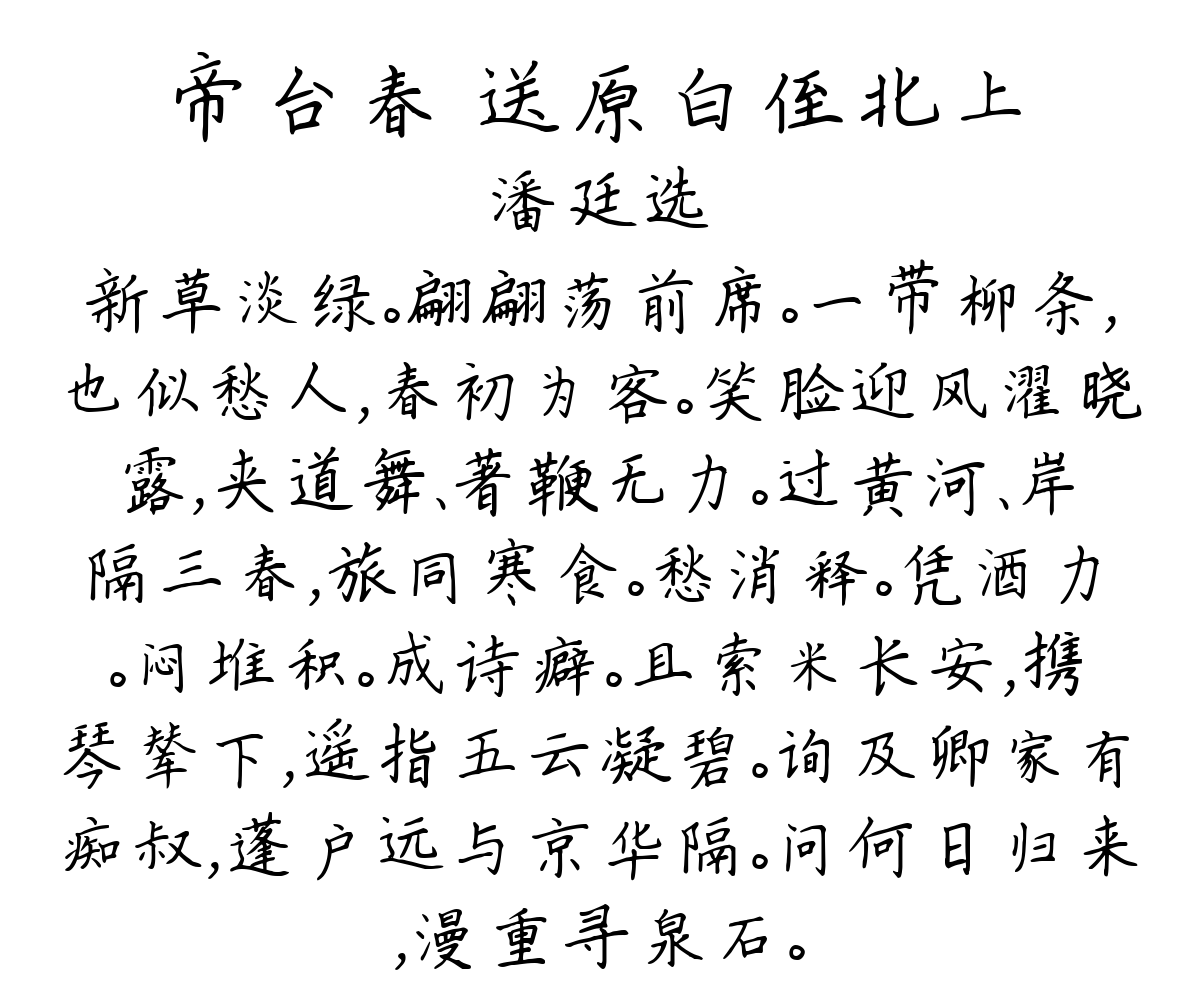 帝台春 送原白侄北上
潘廷选
新草淡绿。翩翩荡前席。一带柳条,
也似愁人,春初为客。笑脸迎风濯晓
露,夹道舞、著鞭无力。过黄河、岸
隔三春,旅同寒食。愁消释。凭酒力
。闷堆积。成诗癖。且索米长安,携
琴辇下,遥指五云凝碧。询及卿家有
痴叔,蓬户远与京华隔。问何日归来
,漫重寻泉石。